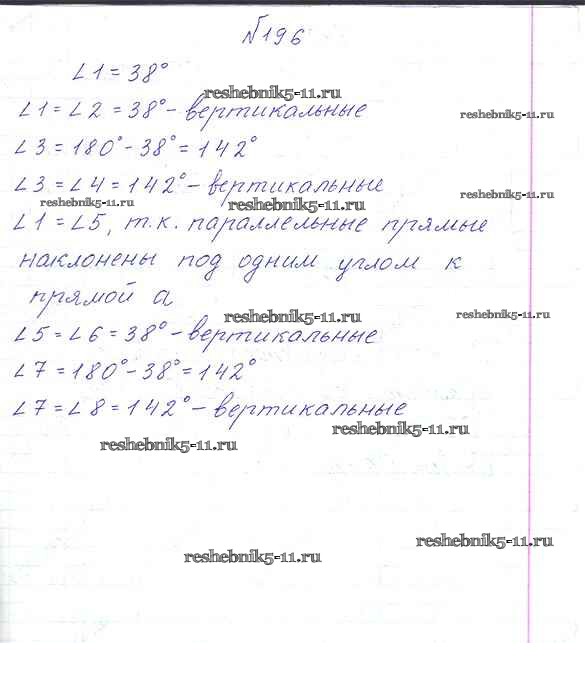 №196
∠1 = 38°
reshebnik5-11.ru
∠1 = ∠2 = 38° - вертикальные
reshebnik5-11.ru
∠3 = 180° - 38° = 142°
∠3 = ∠4 = 142° - вертикальные
reshebnik5-11.ru
reshebnik5-11.ru
reshebnik5-11.ru
∠1 = ∠5, т.к. параллельные прямые
наклонены под одним углом к
прямой a
reshebnik5-11.ru
reshebnik5-11.ru
∠5 = ∠6 = 38° - вертикальные
∠7 = 180° - 38° = 142°
∠7 = ∠8 = 142° - вертикальные
reshebnik5-11.ru
reshebnik5-11.ru
reshebnik5-11.ru
reshebnik5-11.ru